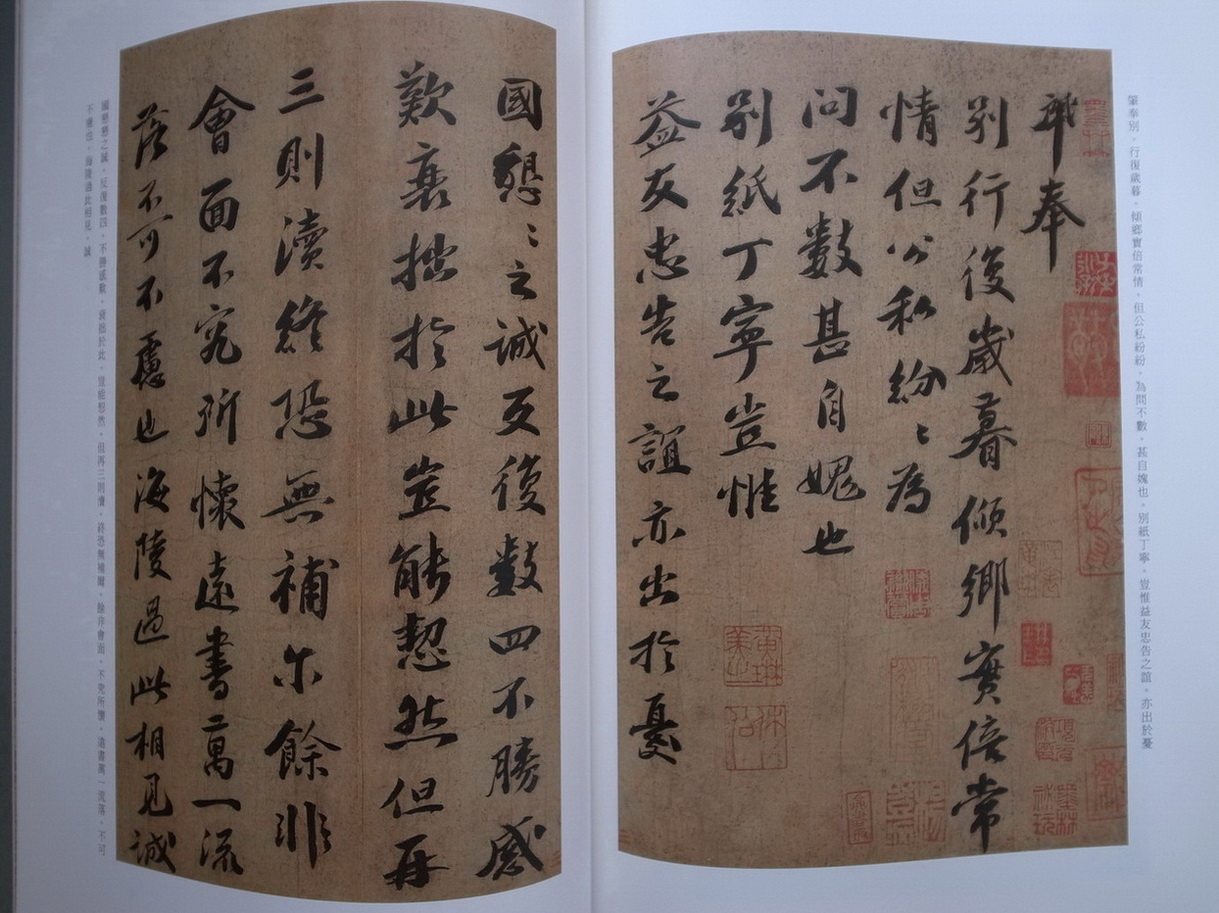 肇奉別。行復歲暮。傾鄉實倍常情。但公私紛紛。為問不數。甚自媿也。別紙丁寧。豈惟益友忠告之誼。亦出於憂
肇奉
別行復歲暮傾鄉實倍常
情但公私紛〻為
問不數甚自媿也
別紙丁寧豈惟
益友忠告之誼亦出於憂
黃琳美之
休伯
國懇〻之誠反復數四不勝感
歎衰拙於此豈能恝然但再
三則瀆終恐無補尔餘非
會面不究所懷遠書萬一流
落不可不慮也海陵過此相見誠
國懇懇之誠。反復數四。不勝感歎。衰拙於此。豈能恝然。但再三則瀆。終恐無補爾。餘非會面。不究所懷。遠書萬一流落。不可
不慮也。海陵過此相見。誠